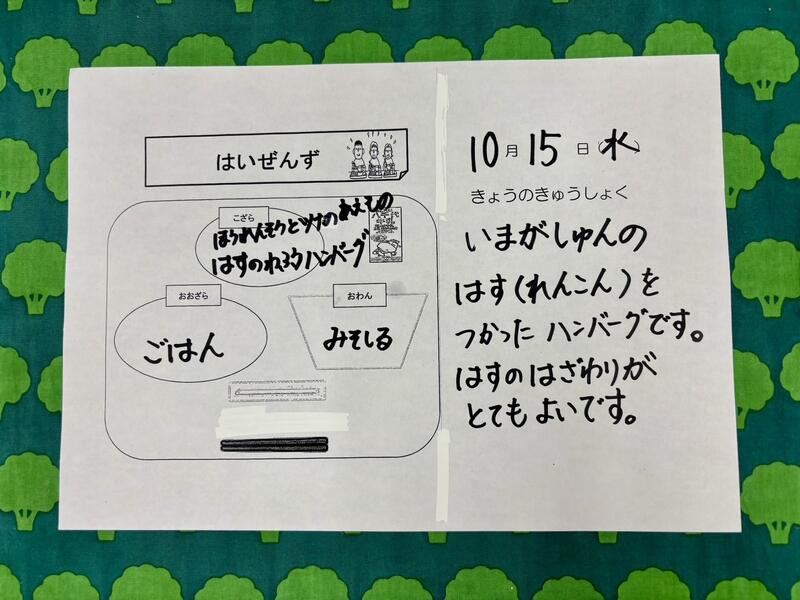 はいぜんず
こざら
ほうれんそうとツナのあえもの
はすのれんこんハンバーグ
おおざら
ごはん
おわん
みそしる
10月15日(水)
きょうのきゅうしょく
いまがしゅんの
はす(れんこん)を
つかった ハンバーグです。
はすの はざわりが
とても よいです。